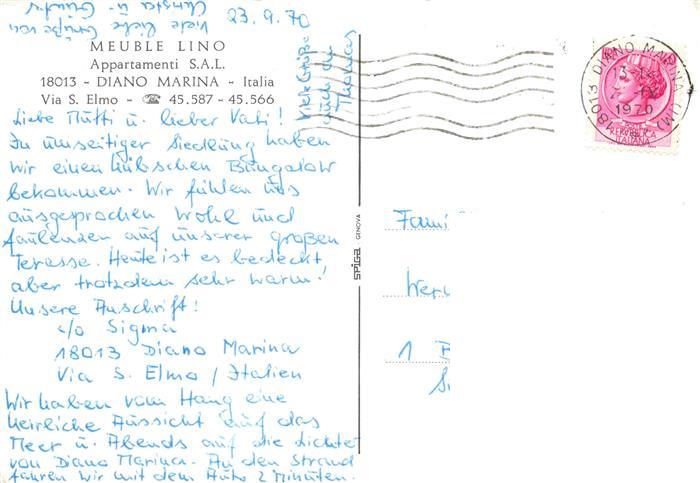 23.9.70
MEUBLE LINO
Appartamenti S.A.L.
18013 - DIANO MARINA - Italia
Via S. Elmo - ☎ 45.587 - 45.566
Liebe Mutti u. lieber Vati!
In umseitiger Siedlung haben
wir einen hübschen Bungalow
bekommen. Wir fühlen uns
ausgesprochen wohl und
faulenzen auf unserer großen
Terasse. Heute ist es bedeckt
aber trotzdem sehr warm!
Unsere Anschrift:
c/o Sigma
18013 Diano Marina
Via S. Elmo / Italien
Wir haben vom Hang eine
herrliche Aussicht auf das
Meer u. Abends auf die Lichter
von Diano Marina. An den Strand
fahren wir mit dem Auto 2 Minuten.
Viele liebe Grüße von
Christa u.
Viele Grüße
auch
Thomas
spiga GENOVA
18013 DIANO MARINA (IM)
1970
REPUBBLICA
ITALIANA
Fami
Wer
1